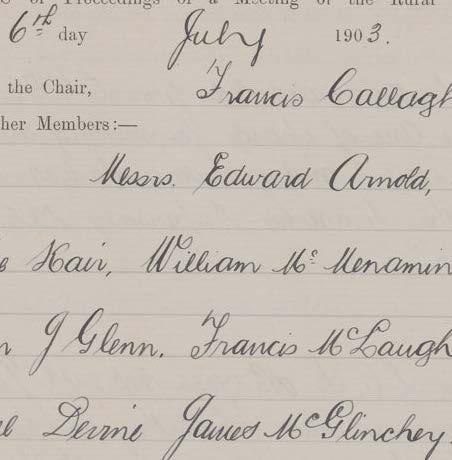 of Proceedings of a Meeting of the Rural
6th day July 1903.
the Chair, Francis Callagh
her Members:—
Messrs. Edward Arnold,
Hair, William Mc Menamin
J Glenn. Francis McLaugh
Devine James McGlinchey.